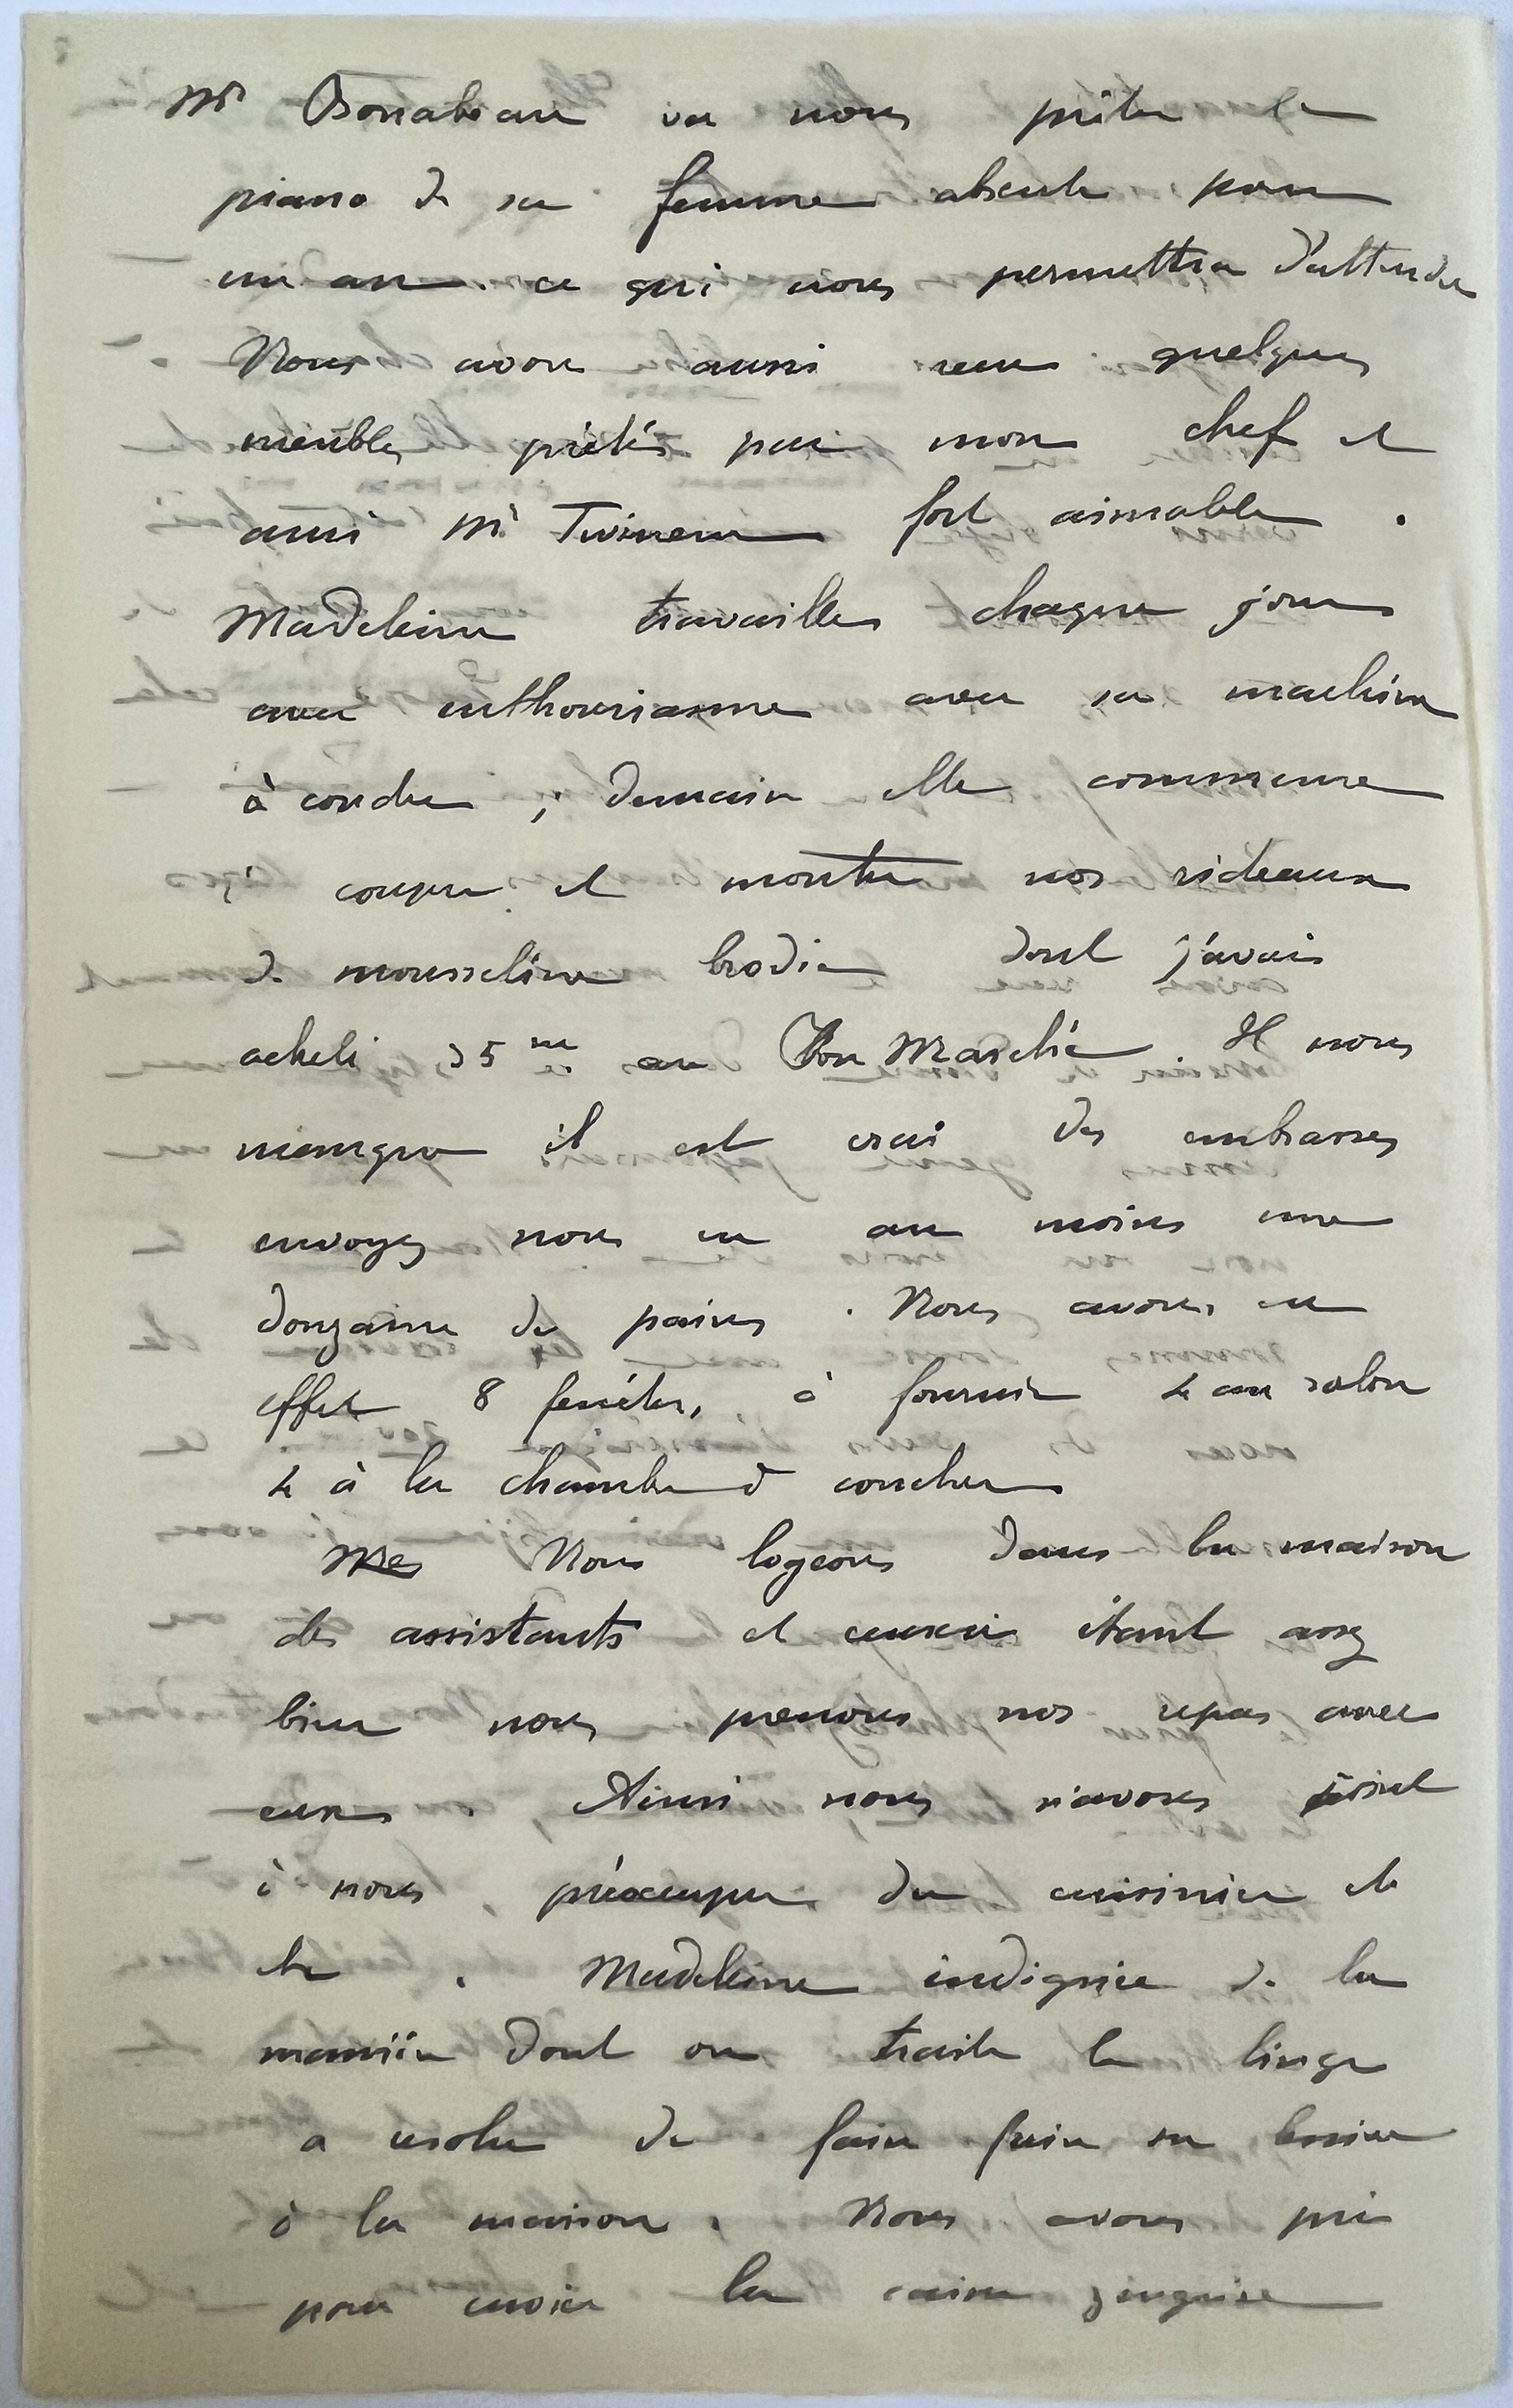 Mr Bonabeau va nous prêter le
piano de sa femme absente pour
un an ce qui nous permettra d'attendre
Nous avons aussi reçu quelques
meubles prêtés par mon chef et
ami Mr Twinem fort aimable .
Madeleine travaille chaque jour
avec enthousiasme avec sa machine
à coudre ; demain elle commence
à couper et monter nos rideaux
de mousseline brodée dont j'avais
acheté 35 m au Bon Marché . Il nous
manque il est vrai des embrasses
envoyez nous en au moins une
douzaine de paires . Nous avons en
effet 8 fenêtres, à fournir 4 au salon
4 à la chambre à coucher
Nous logeons dans la maison
des assistants et ceux ci étant assez
bien nous prenons nos repas avec
eux . Ainsi nous n'avons point
à nous préoccuper du cuisinier etc
etc . Madeleine indignée de la
manière dont on traite le linge
a résolu de faire faire sa lessive
à la maison . Nous avons pris
pour cuvier la caisse zinguée